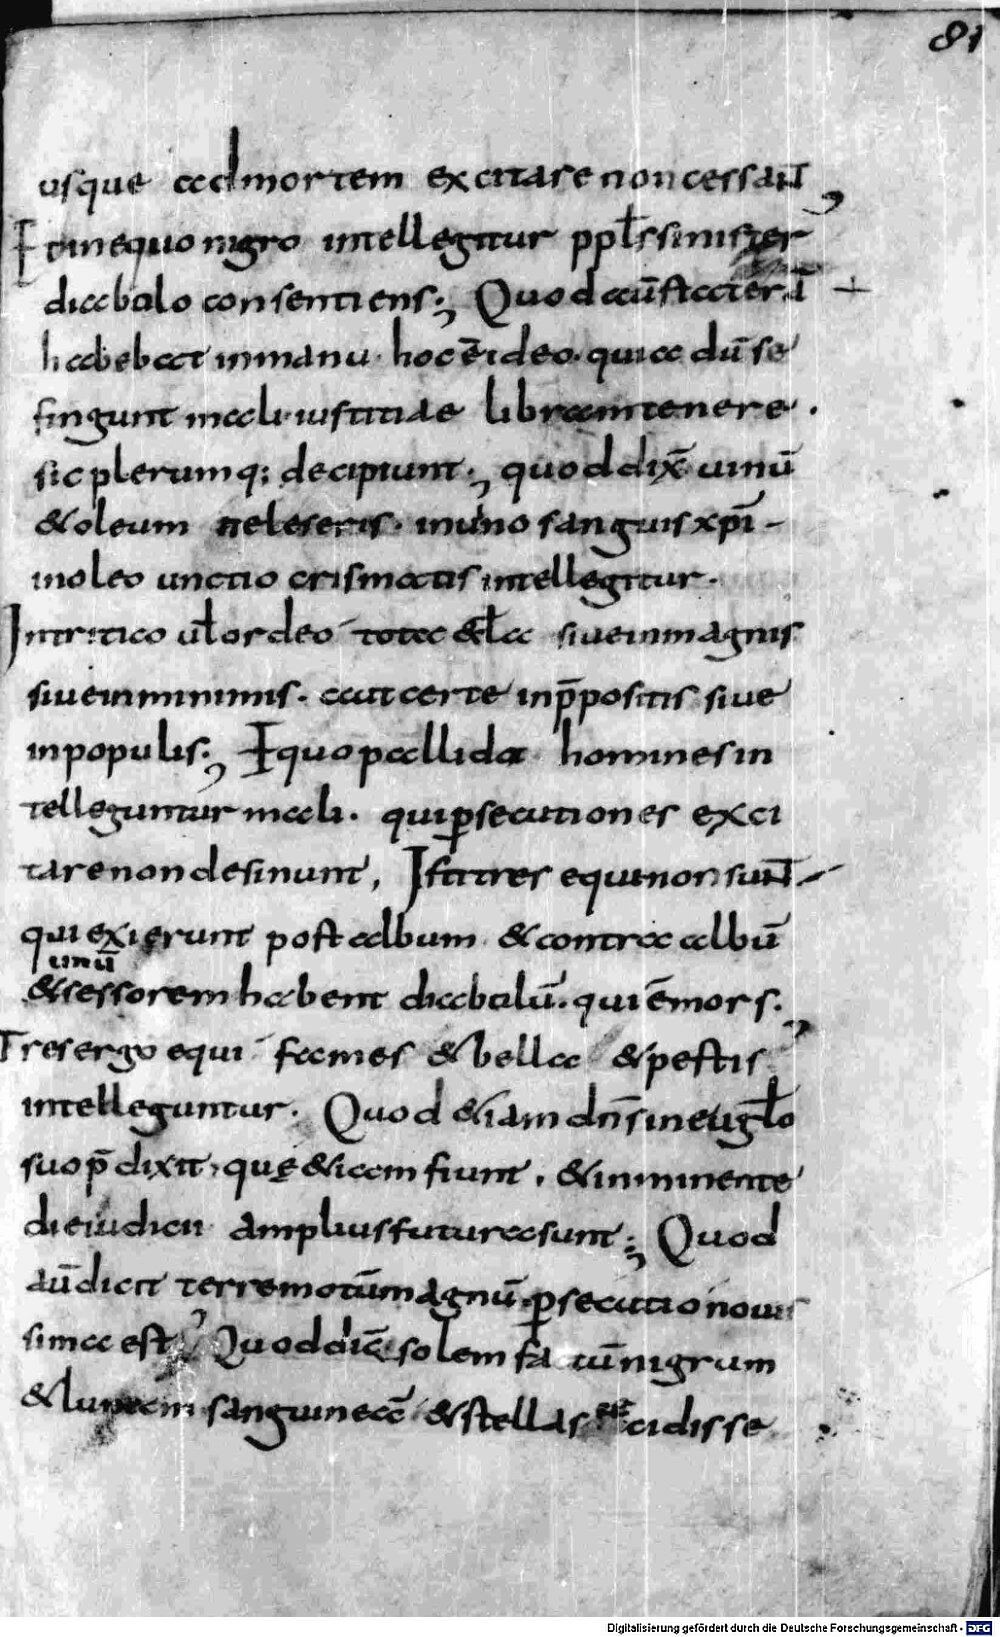 81
usque ad mortem excitare non cessant;
Et in equo nigro intellegitur ppl̄s sinister
diabolo consentiens; Quod aū stateram̄ +
habebat in manu. hoc ē ideo. quia dū se
fingunt mali iustitiae libram tenere.
sic plerumq; decipiunt; quod dix̄ uinū
& oleum ne leseris. in uino sanguis xp̄i
in oleo unctio crismatis intellegitur.
In tritico ul̄ ordeo tota &cl̄a siue in magnis
siue in minimis. aut certe in p̄positis siue
in populis; Equo pallido homines in
telleguntur mali. qui ꝑsecutiones exci
tare non desinunt, Isti tres equi non sunt
qui exierunt post album & contra albū
unū
& sessorem habent diabolū. qui ē mors.
Tres ergo equi fames & bella & pestis
intelleguntur. Quod &iam dn̄s in eugl̄o
suo p̄dixit, quę &iam fiunt. & imminente
die iudicii amplius futura sunt; Quod
aū dicit terremotū magnū. ꝑsecutio nouis
sima est; Quod dic̄ solem fa tū nigrum
& lunam sanguineā & stellas cidisse
Digitalisierung gefördert durch die Deutsche Forschungsgemeinschaft - DFG